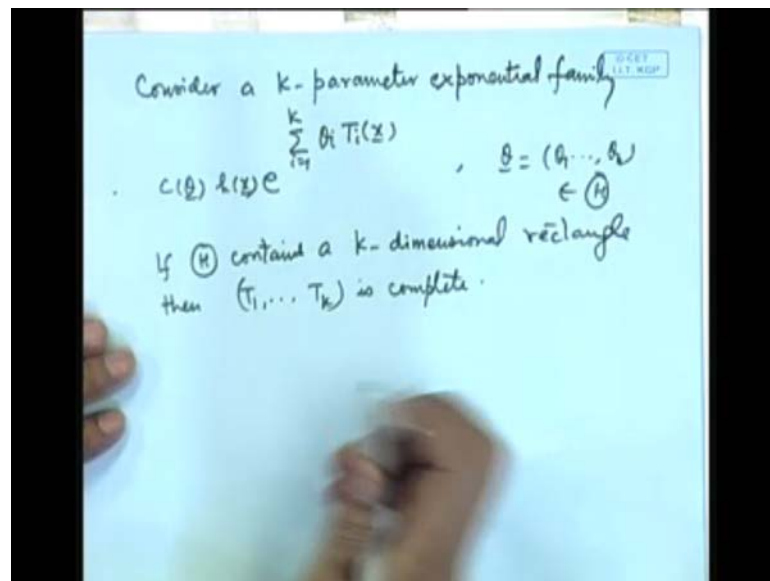 Consider a k-parameter exponential family
C(θ) h(x) e^{\sum_{i=1}^{k} θi Ti(x)} , θ = (θ1 ..., θk) ∈ Ⓗ
If Ⓗ contains a k-dimensional rectangle
then (T1, ... Tk) is complete.
I.I.T. KGP